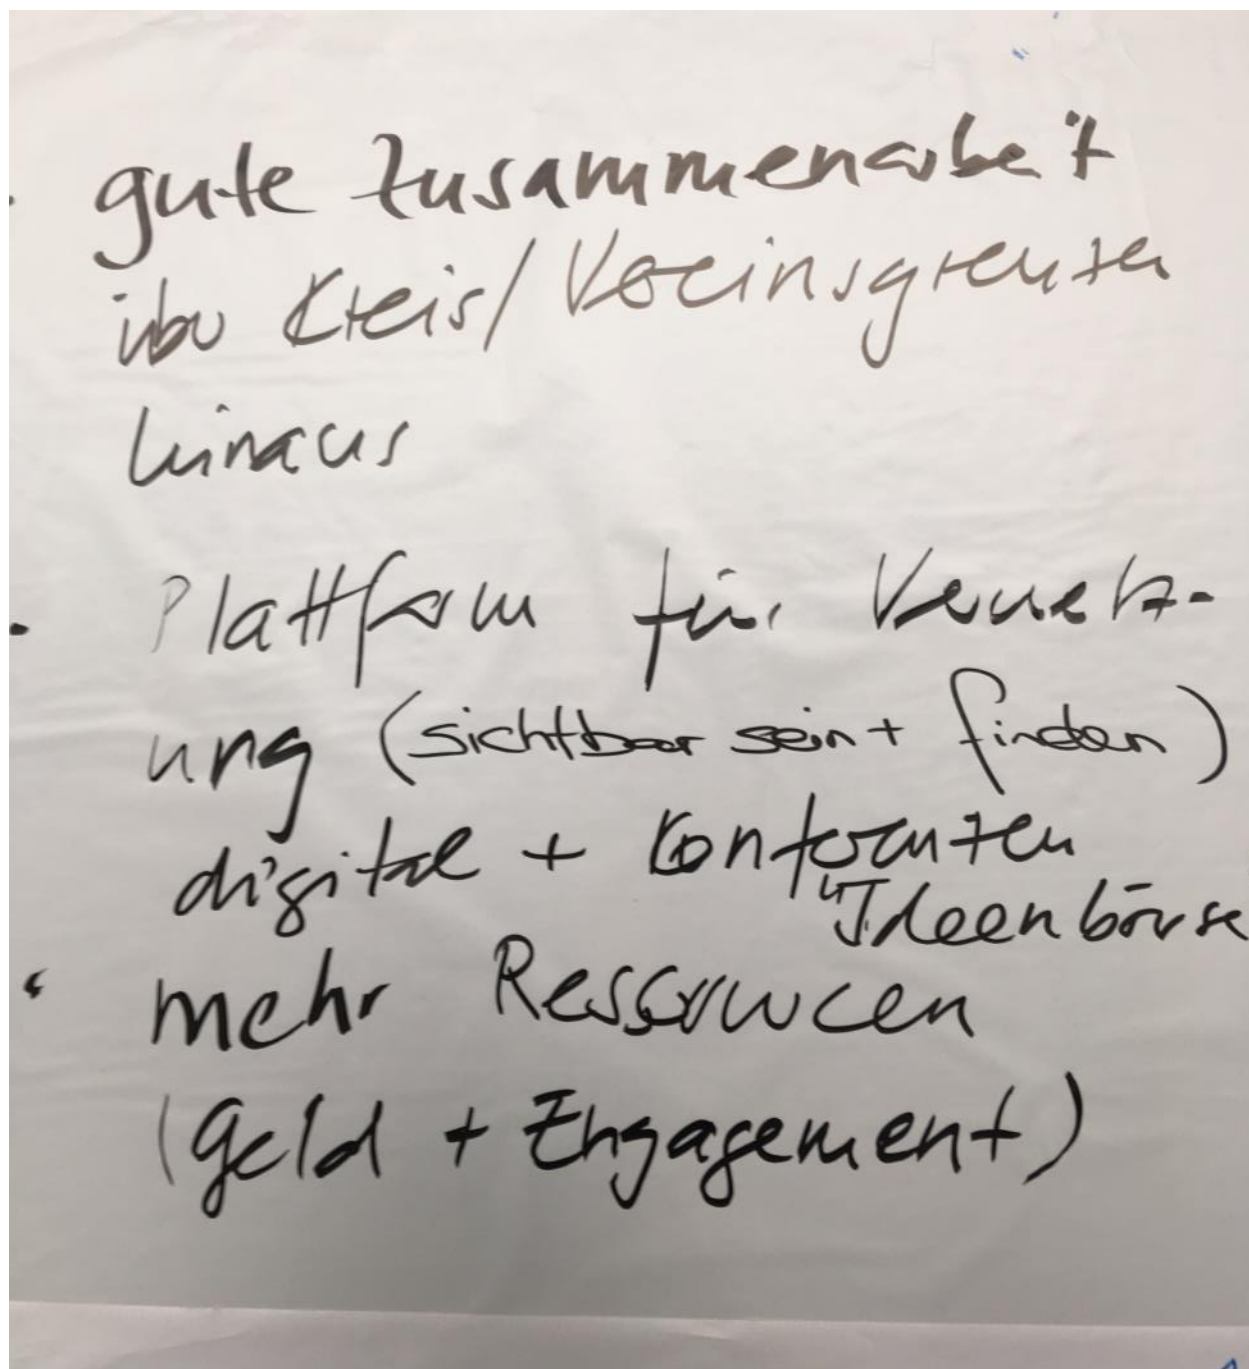 · gute Zusammenarbeit
über Kreis/Vereinsgrenzen
hinaus
· Plattform für Vernetz-
ung (sichtbar sein + finden)
digital + Konferenzen
"Ideenbörse
· mehr Ressourcen
(Geld + Engagement)